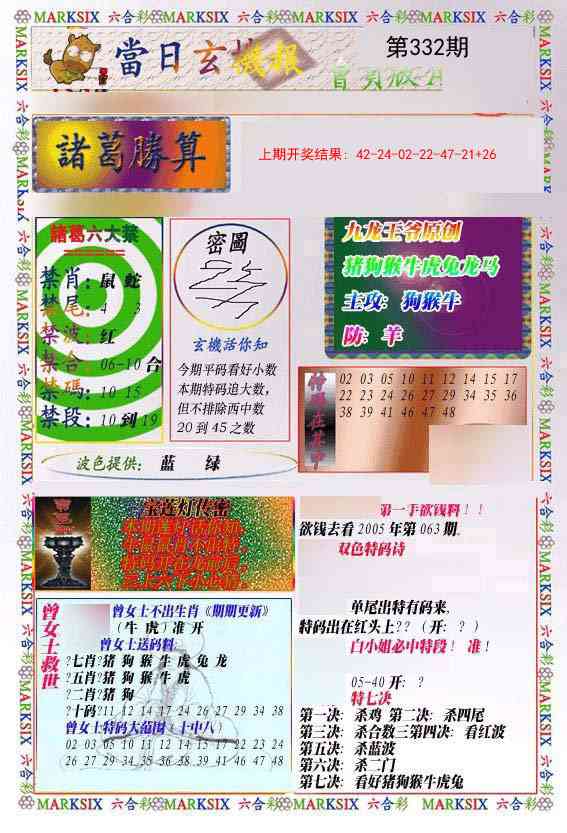 MARKSIX 六合彩 MARKSIX 六合彩 MARKSIX 六合彩 MARKSIX
當日玄機報
第332期
諸葛勝算
上期开奖结果：42-24-02-22-47-21+26
諸葛六大禁
禁肖：鼠 蛇
禁尾：4 3
禁波：红
禁合：06-10 合
禁碼：10 15
禁段：10 到 19
密圖
玄機活你知
今期平码看好小数
本期特码追大数，
但不排除西中数
20 到 45 之数
九龙王爷原创
猪狗猴牛虎兔龙马
主攻：狗猴牛
防：羊
02 03 05 10 11 12 14 15 17
22 23 24 26 27 29 34 35 36
38 39 41 46 47 48
波色提供：蓝 绿
宝莲灯传密
第一手欲钱料！！
欲钱去看 2005 年第 063 期。
双色特码诗
单尾出特有码来，
特码出在红头上？？（开：？）
白小姐必中特段！ 准！
05-40 开：？
特七决
第一决：杀鸡 第二决：杀四尾
第三决：杀合数三第四决：看红波
第五决：杀蓝波
第六决：杀二门
第七决：看好猪狗猴牛虎兔
曾女士救世
曾女士不出生肖《期期更新》
（牛 虎）准 开
曾女士送码料
?七肖?猪 狗 猴 牛 虎 兔 龙
?五肖?猪 狗 猴 牛 虎
?二肖?猪 狗
?十码?11 12 14 17 24 26 27 29 34 38
曾女士特码大范围（十中八）
02 03 05 10 11 12 14 15 17 22 23 24
26 27 29 34 35 36 38 39 41 46 47 48
MARKSIX 六合彩 MARKSIX 六合彩 MARKSIX 六合彩 MARKSIX